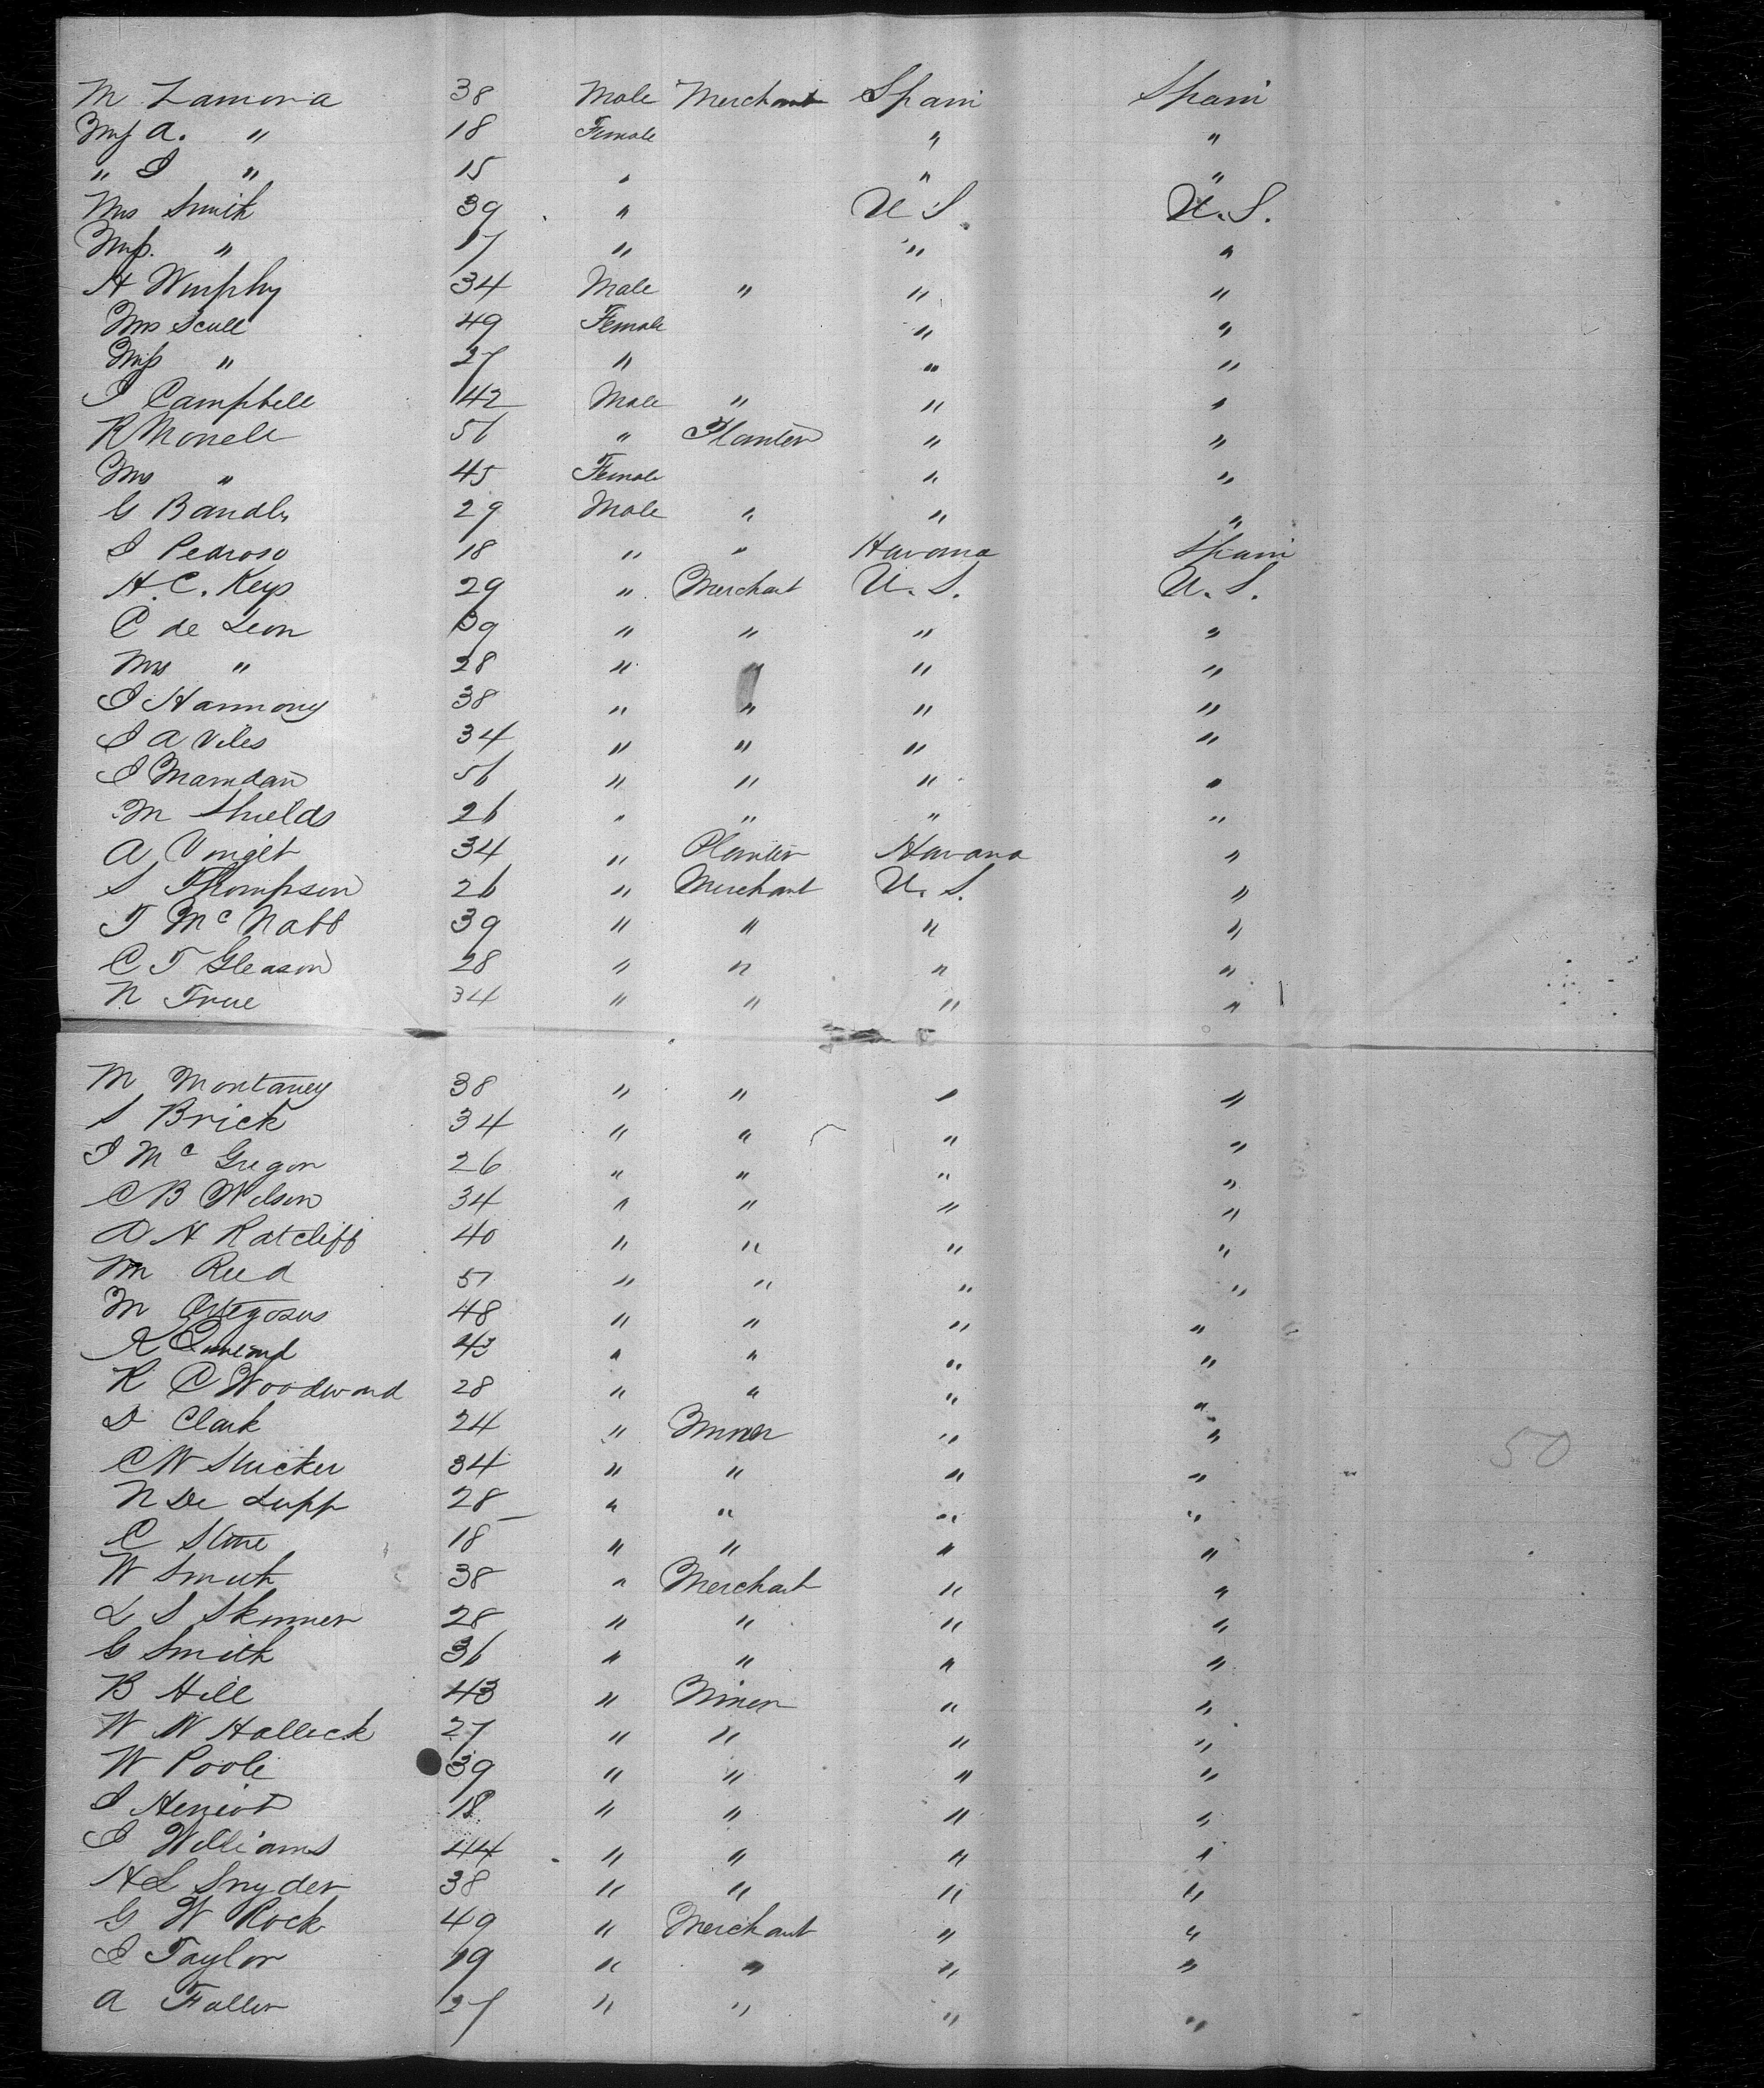 M Zamora 38 Male Merchant Spain Spain
Miss A. " 18 Female " "
" J " 15 " " "
Mrs Smith 39 " U S. U. S.
Miss " 17 " " "
H Murphy 34 Male " " "
Mrs Scull 49 Female " "
Miss " 27 " " "
J Campbell 42 Male " " "
R Monell 56 " Planter " "
Mrs " 45 Female " "
G Bandly 29 Male " " "
J Pedroso 18 " " Havana Spain
H. C. Keys 29 " Merchant U. S. U. S.
C de Leon 39 " " " "
Mrs " 28 " " " "
J Harmony 38 " " " "
J A Viles 34 " " " "
J 56 " " " "
M Shields 26 " " " "
A 34 " Planter Havana "
S Thompson 26 " Merchant U. S. "
T McNabb 39 " " " "
C T Gleason 28 " " " "
N True 34 " " " "
M Montaney 38 " " " "
S Brick 34 " " " "
J McGregor 26 " " " "
C B Wilson 34 " " " "
A H Ratcliff 40 " " " "
M Reed 51 " " " "
M 48 " " " "
R 43 " " " "
R C Woodward 28 " " " "
D Clark 24 " Miner " "
C W Slucker 34 " " " "
N De Lupp 28 " " " "
C Stone 18 " " " "
W Smith 38 " Merchant " "
L S Skinner 28 " " " "
G Smith 36 " " " "
B Hill 43 " Miner " "
W W Halleck 27 " " " "
W Poole 39 " " " "
J Heriot 18 " " " "
J Williams 44 " " " "
H L Snyder 38 " " " "
G W Rock 49 " Merchant " "
J Taylor 19 " " " "
A Fuller 27 " " " "
50